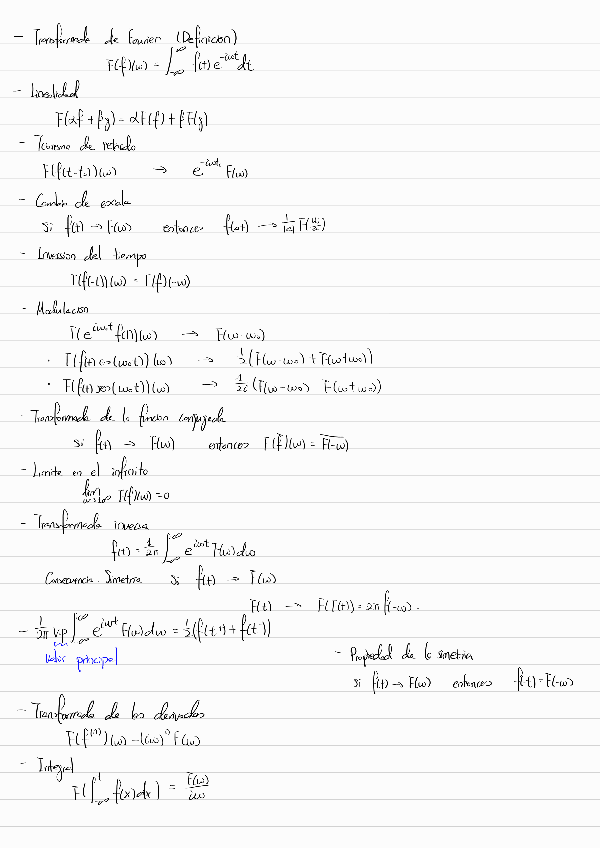 - Transformada de Fourier (Definicion)
F(f)(ω) = ∫_{-∞}^{∞} f(t) e^{-iωt} dt
- Linealidad
F(αf + βg) = αF(f) + βF(g)
- Teorema de retardo
F(f(t-t₀))(ω) → e^{-iωt₀} F(ω)
- Cambio de escala
Si f(t) → F(ω) entonces f(at) → 1/|a| F(ω/a)
- Inversion del tiempo
F(f(-t))(ω) = F(f)(-ω)
- Modulacion
F(e^{iω₀t} f(t))(ω) → F(ω-ω₀)
· F(f(t) cos(ω₀t))(ω) → 1/2 (F(ω-ω₀) + F(ω+ω₀))
· F(f(t) sen(ω₀t))(ω) → 1/2i (F(ω-ω₀) F(ω+ω₀))
· Transformada de la funcion conjugada
Si f(t) → F(ω) entonces F(f̄)(ω) = \overline{F(-ω)}
- Limite en el infinito
lim F(f)(ω) = 0
- Transformada inversa
f(t) = 1/2π ∫_{-∞}^{∞} e^{iωt} F(ω) dω
Consecuencia. Simetria Si f(t) → F(ω)
F(t) → F(F(t)) = 2π f(-ω).
- 1/2π V.P ∫_{-∞}^{∞} e^{iωt} F(ω) dω = 1/2 (f(t⁺) + f(t⁻))
Valor principal
- Propiedad de la simetria
Si f(t) → F(ω) entonces f(t) = F(-ω)
- Transformada de las derivadas
F(f^{(n)})(ω) = (iω)^n F(ω)
- Integral
F(∫_{-∞}^{t} f(x) dx) = F(ω)/iω